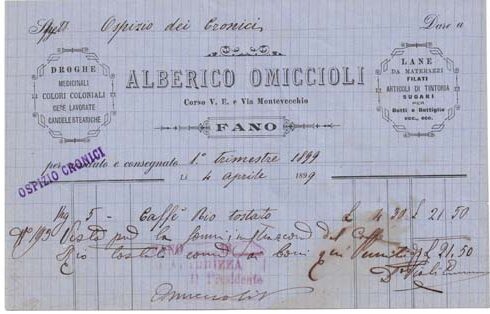 Spett. Ospizio dei Cronici, Dare a
DROGHE
MEDICINALI
COLORI COLONIALI
CERE LAVORATE
CANDELE STEARICHE
ALBERICO OMICCIOLI
Corso V. E. e Via Montevecchio
FANO
LANE
DA MATERAZZI
FILATI
ARTICOLI DI TINTORIA
SUGARI
PER
Botti e Bottiglie
ecc., ecc.
per e consegnato 1° Trimestre 1899
OSPIZIO CRONICI
Li 4 aprile 1899
Kg 5 - Caffè Rio tostato £ 4 30 £ 21.50
Visto per la del Caffe
Rio tostato come £ 21.50
Il Presidente